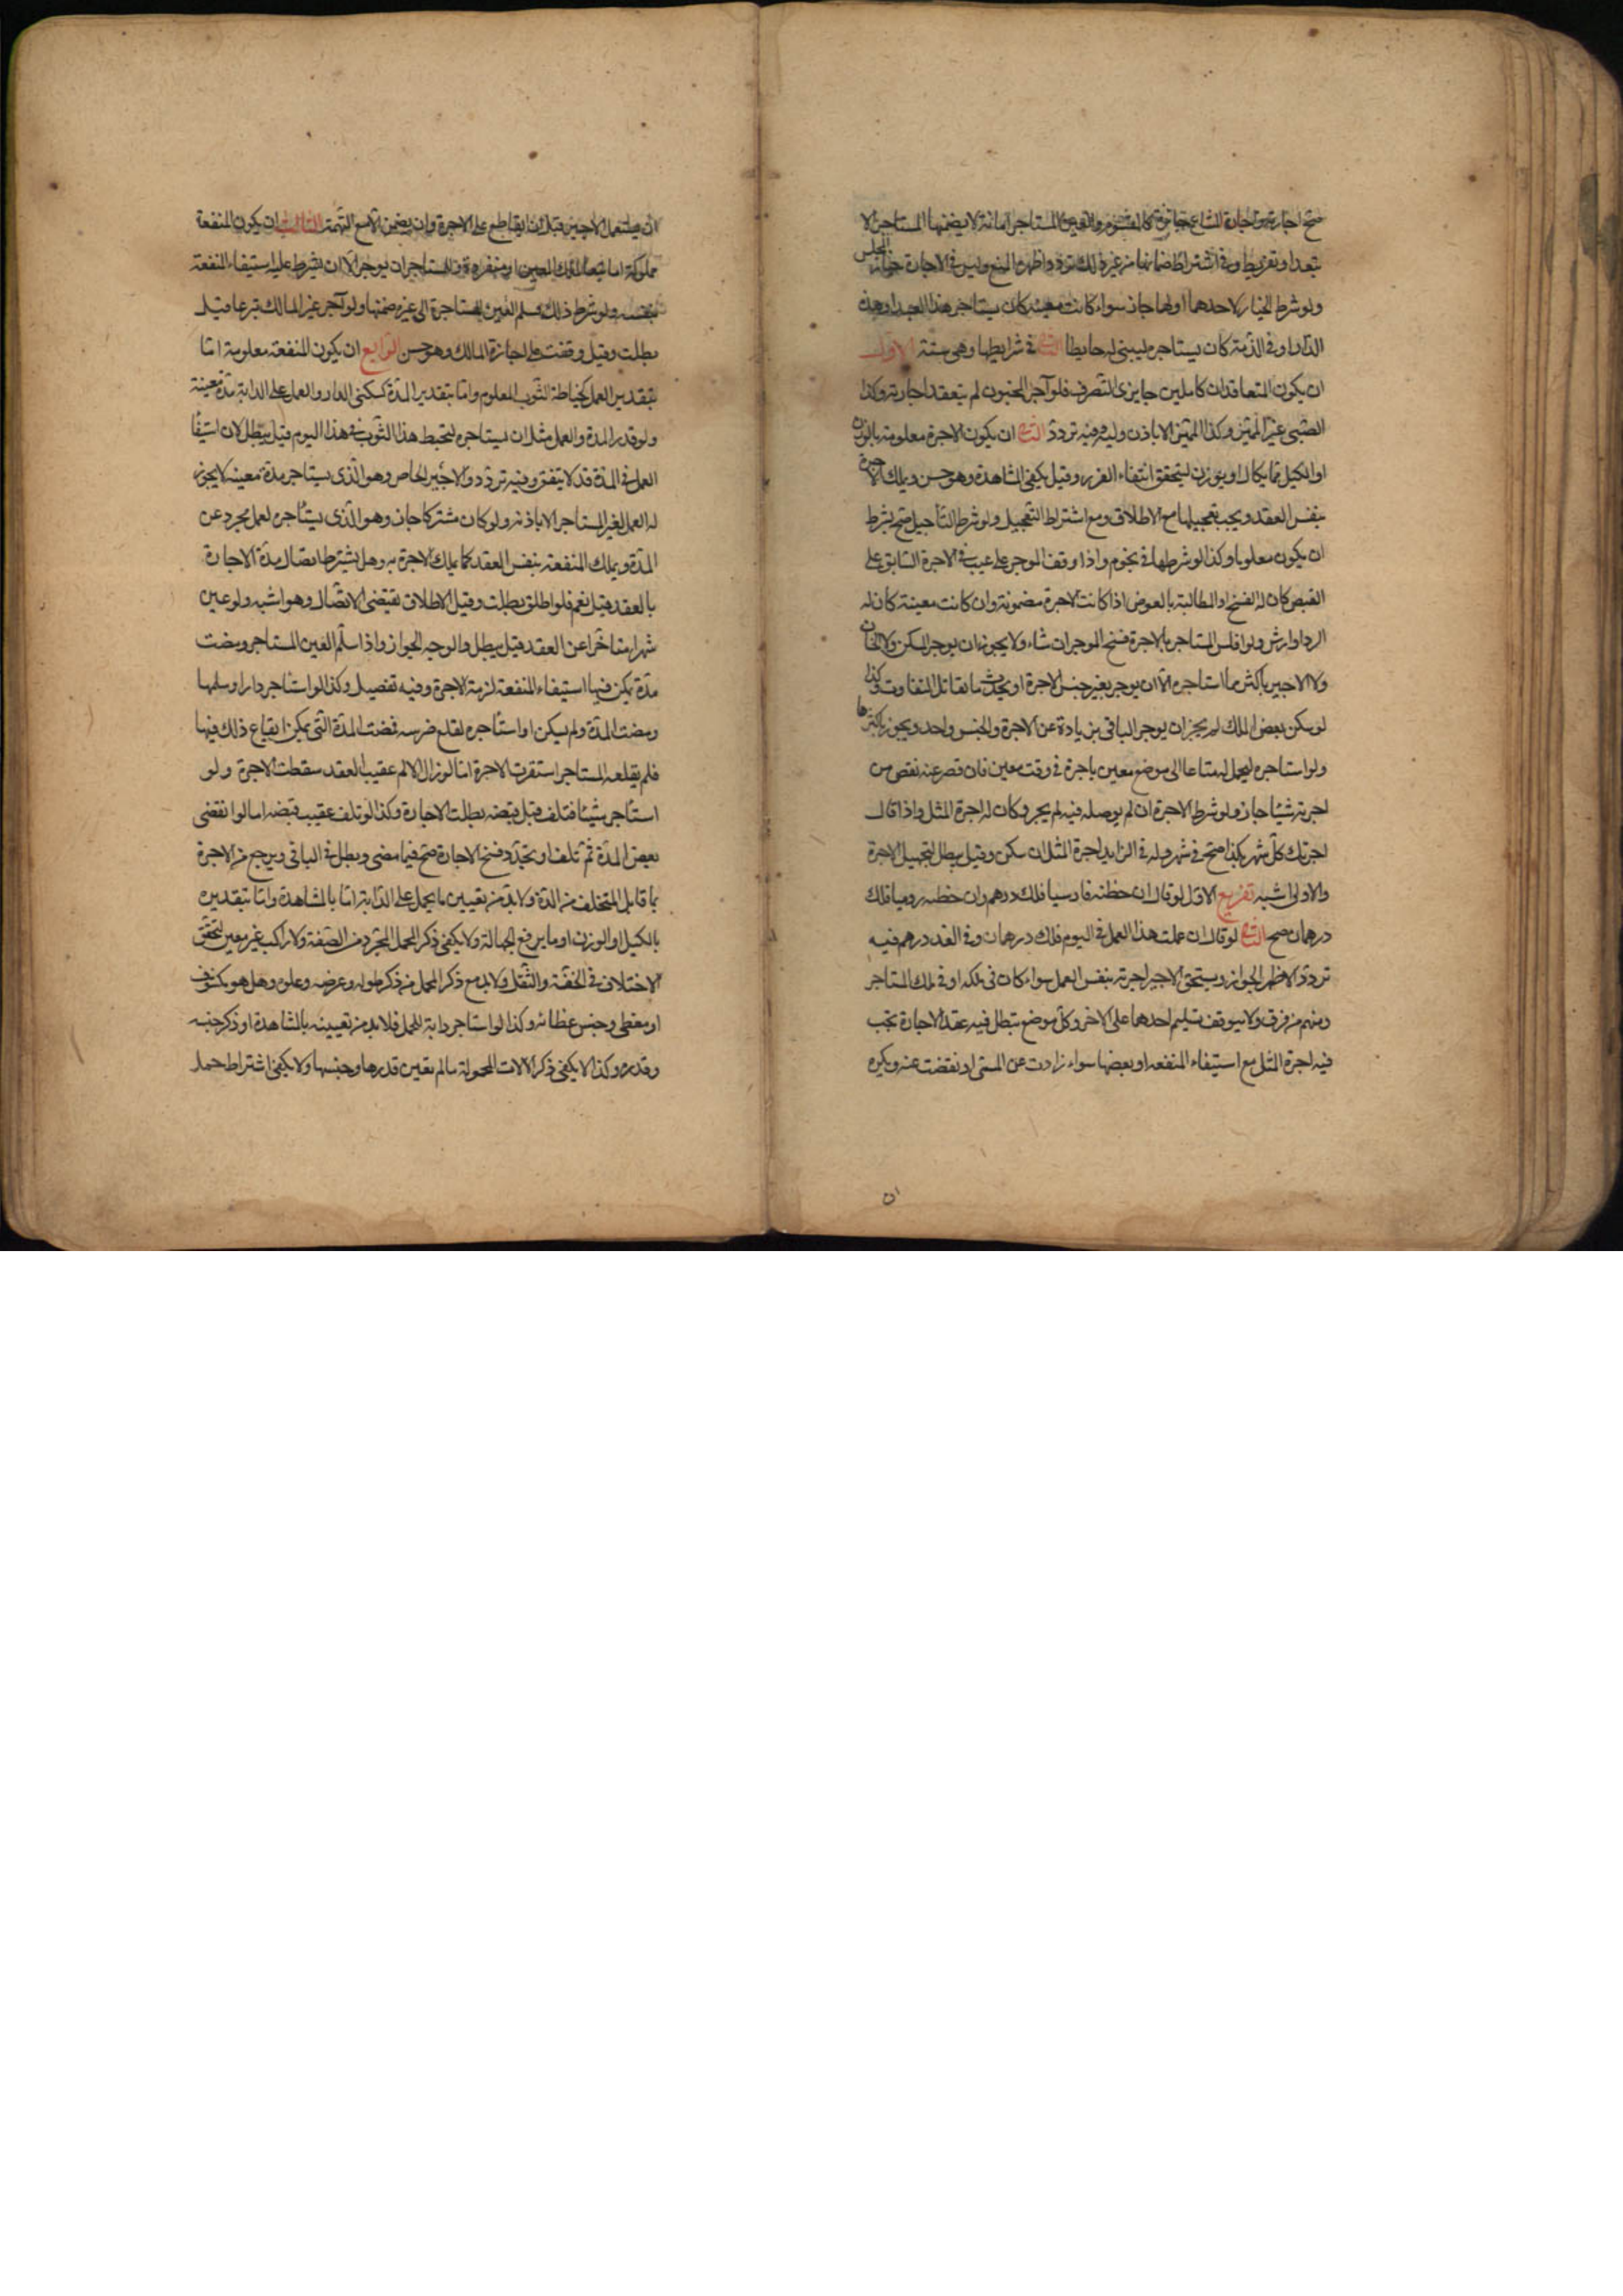 صح اجارته واجارة المشاع جايزة كالمقسوم والعين المستاجرة امانة لا يضمنها المستاجر الا
بتعد او تفريط وفي اشتراط ضمانها من غير ذلك تردد اظهره المنع وليس في الاجارة خيار المجلس
ولو شرط الخيار لاحدهما او لهما جاز سواء كانت معينة كان يستاجر هذا العبد او هذه
الدار او في الذمة كان يستاجره ليبنى له حايطا الثاني في شرايطها وهي ستة الاول
ان يكون المتعاقدان كاملين جايزى التصرف فلو آجر المجنون لم ينعقد اجارته وكذا
الصبي غير المميز وكذا المميز الا باذن وليه وفيه تردد الثاني ان يكون الاجرة معلومة بالوزن
او الكيل مما يكال او يوزن ليتحقق انتفاء الغرر وقيل يكفي المشاهدة وهو حسن ويملك الاجرة
بنفس العقد ويجب تعجيلها مع الاطلاق ومع اشتراط التعجيل ولو شرط التأجيل صح بشرط
ان يكون معلوما وكذا لو شرطها في نجوم واذا وقف الموجر على عيب في الاجرة السابق على
القبض كان له الفسخ او المطالبة بالعوض اذا كانت الاجرة مضمونة وان كانت معينة كان له
الرد او ارش ولو افلس المستاجر بالاجرة فسخ الموجر ان شاء ولا يجوز ان يوجر المسكن ولا الخان
ولا الاجير باكثر مما استاجره الا ان يوجر بغير جنس الاجرة او يحدث ما يقابل التفاوت وكذا
لو سكن بعض الملك لم يجز ان يوجر الباقي بزيادة عن الاجرة والجنس واحد ويجوز باكثرها
ولو استاجره ليحمل له متاعا الى موضع معين باجرة في وقت معين فان قصر عنه نقص من
اجرته شيئا جاز ولو شرط الاجرة ان لم يوصله فيه لم يجز وكان له اجرة المثل واذا قال
اجرتك كل شهر بكذا صح في شهر وله في الزايد اجرة المثل ان سكن وقيل يبطل لتجهيل الاجرة
والاول اشبه تفريع الاول لو قال ان خطته فارسيا فلك درهم وان خطته روميا فلك
درهمان صح الثاني لو قال ان عملت هذا العمل في اليوم فلك درهمان وفي الغد درهم فيه
تردد الاظهر الجواز ويستحق الاجير اجرته بنفس العمل سواء كان في ملكه او في ملك المستاجر
ومنهم من فرق ولا يتوقف تسليم احدهما على الاخر وكل موضع تبطل فيه عقد الاجارة تجب
فيه اجرة المثل مع استيفاء المنفعة او بعضها سواء زادت عن المسمى او نقضت عنه ويكره
ان
ان يستعمل الاجير قبل ان يقاطع على الاجرة وان يضمن الا مع التهمة الثالث ان يكون المنفعة
مملوكة اما تبعا لملك العين او منفردة وللمستاجر ان يوجر الا ان يشرط عليه استيفاء المنفعة
بنفسه ولو شرط ذلك فسلم العين المستاجرة الى غيره ضمنها ولو آجر غير المالك تبرعا قيل
بطلت وقيل وقفت على اجازة المالك وهو حسن الرابع ان يكون المنفعة معلومة اما
بتقدير العمل كخياطة الثوب المعلوم واما بتقدير المدة كسكنى الدار والعمل على الدابة مدة معينة
ولو قدر المدة والعمل مثل ان يستاجره ليخيط هذا الثوب في هذا اليوم قيل يبطل لان استيفا
العمل في المدة قد لا يتفق وفيه تردد والاجير الخاص وهو الذى يستاجر مدة معينة لا يجوز
له العمل لغير المستاجر الا باذنه ولو كان مشتركا جاز وهو الذى يستأجره لعمل مجرد عن
المدة ويملك المنفعة بنفس العقد كما يملك الاجرة به وهل يشترط اتصال مدة الاجارة
بالعقد قيل نعم فلو اطلق بطلت وقيل الاطلاق تقتضى الاتصال وهو اشبه ولو عين
شهرا متاخرا عن العقد قيل يبطل والوجه الجواز واذا سلم العين المستاجر ومضت
مدة يمكن فيها استيفاء المنفعة لزمته الاجرة وفيه تفصيل وكذا لو استاجر دارا وسلمها
ومضت المدة ولم يسكن او استأجره لقلع ضرسه فمضت المدة التى يمكن ايقاع ذلك فيها
فلم يقلعه المستاجر استقرت الاجرة اما لو زال الالم عقيب العقد سقطت الاجرة ولو
استأجر شيئا فتلف قبل قبضه بطلت الاجارة وكذا لو تلف عقيب قبضه اما لو انقضى
بعض المدة ثم تلف او تجدد فسخ الاجارة صح فيما مضى وبطل في الباقي ويرجع من الاجرة
بما قابل المتخلف من المدة ولا بد من تعيين ما يحمل على الدابة اما بالمشاهدة واما بتقديره
بالكيل او الوزن او ما يرفع الجهالة ولا يكفي ذكر المحمل المجرد من الصفة ولا راكب غير معين لتحقق
الاختلاف في الخفة والثقل ولا بد مع ذكر المحمل من ذكر طوله وعرضه وعلوه وهل هو مكشوف
او مغطى وجنس غطائه وكذا لو استاجر دابة للحمل فلا بد من تعيينه بالمشاهدة او ذكر جنسه
وقدره وكذا لا يكفي ذكر الالات المحمولة ما لم تعين قدرها وجنسها ولا يكفي اشتراط حمل